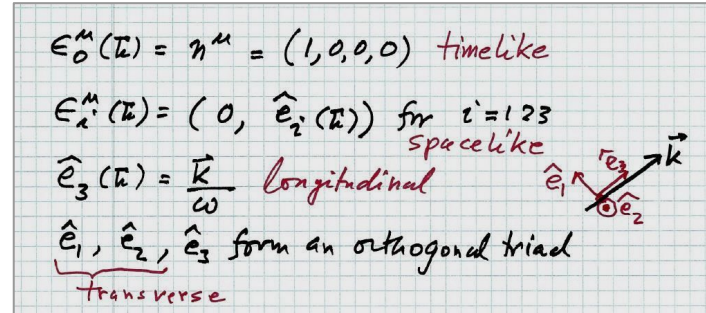 ϵ₀^μ(k̄) = n^μ = (1,0,0,0) timelike
ϵᵢ^μ(k̄) = (0, êᵢ(k̄)) for i=123
spacelike
ê₃(k̄) = k⃗/ω longitudinal
ê₁, ê₂, ê₃ form an orthogonal triad
transverse
k⃗
ê₁
ê₃
ê₂